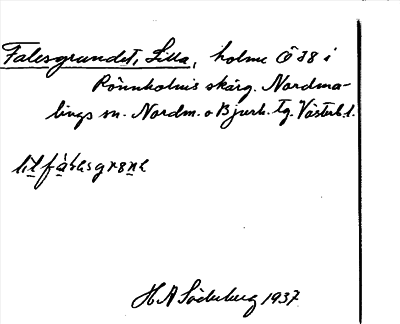 Falesgrundet, Lilla, holme Ö 38 i
Rönnholms skärg. Nordma-
lings sn. Nordm. o Bjurh. tg. Västerb. l.
H A Söderberg 1937